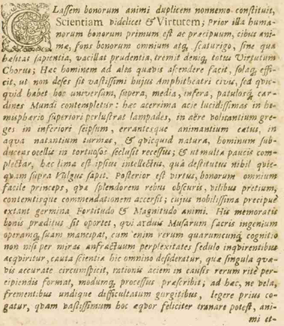 CLassem bonorum animi duplicem nonnemo constituit,
Scientiam videlicet & Virtutem; prior illa huma-
norum bonorum primum est ac præcipuum, cibus ani-
mæ, fons bonorum omnium atq; scaturigo, sine qua
hæbitat sapientia, vacillat prudentia, tremit deniq; totus Virtutum
Chorus; Hæc hominem ad alta quævis ascendere facit, solaq; effi-
cit, ut non deses sis vastissimi hujus Amphitheatri civis, sed quic-
quid habet hoc universum, supera, media, infera, patulosq; car-
dines Mundi contempletur: hæc acerrima acie lucidissimas in he-
misphærio superiori perlustrat lampades, in aëre volitantium gre-
ges in inferiori seipsum, errantesque animantium cætus, in
aqua natantium turmas, & quicquid natura, hominum sub-
ducens ocellis in tortuosos seclusit recessus; & ut multa paucis com-
plectar, hæc lima est ipsius intellectus, qua destitutus nihil quic-
quam supra Vulgus sapit. Posterior est virtus, bonorum omnium
facile princeps, qua splendorem rebus obscuris, vilibus pretium,
contentisque commendationem accersit; cujus nobilissima præcipuè
extant germina Fortitudo & Magnitudo animi. His memoratis
bonis præditus sit oportet, qui arduas Musarum sacris ingenium
operamq; suam mancipat, cum enim rerum quarumcunq; cognitio
non nisi per miras anfractuum perplexitates sedulo inquirentibus
acquiritur, cauta scientia hic omnino desideratur, quæ singula quæ-
vis accurate circumspicit, rationũ aciem in causis rerum ritè per-
cipiendis format, modumq; processus præscribit; ad hæc, ne vela,
frementibus undique difficultatum gurgitibus, legere prius co-
gatur, quam vastissimum hoc æquor feliciter tranare potest, ani-
mi et-